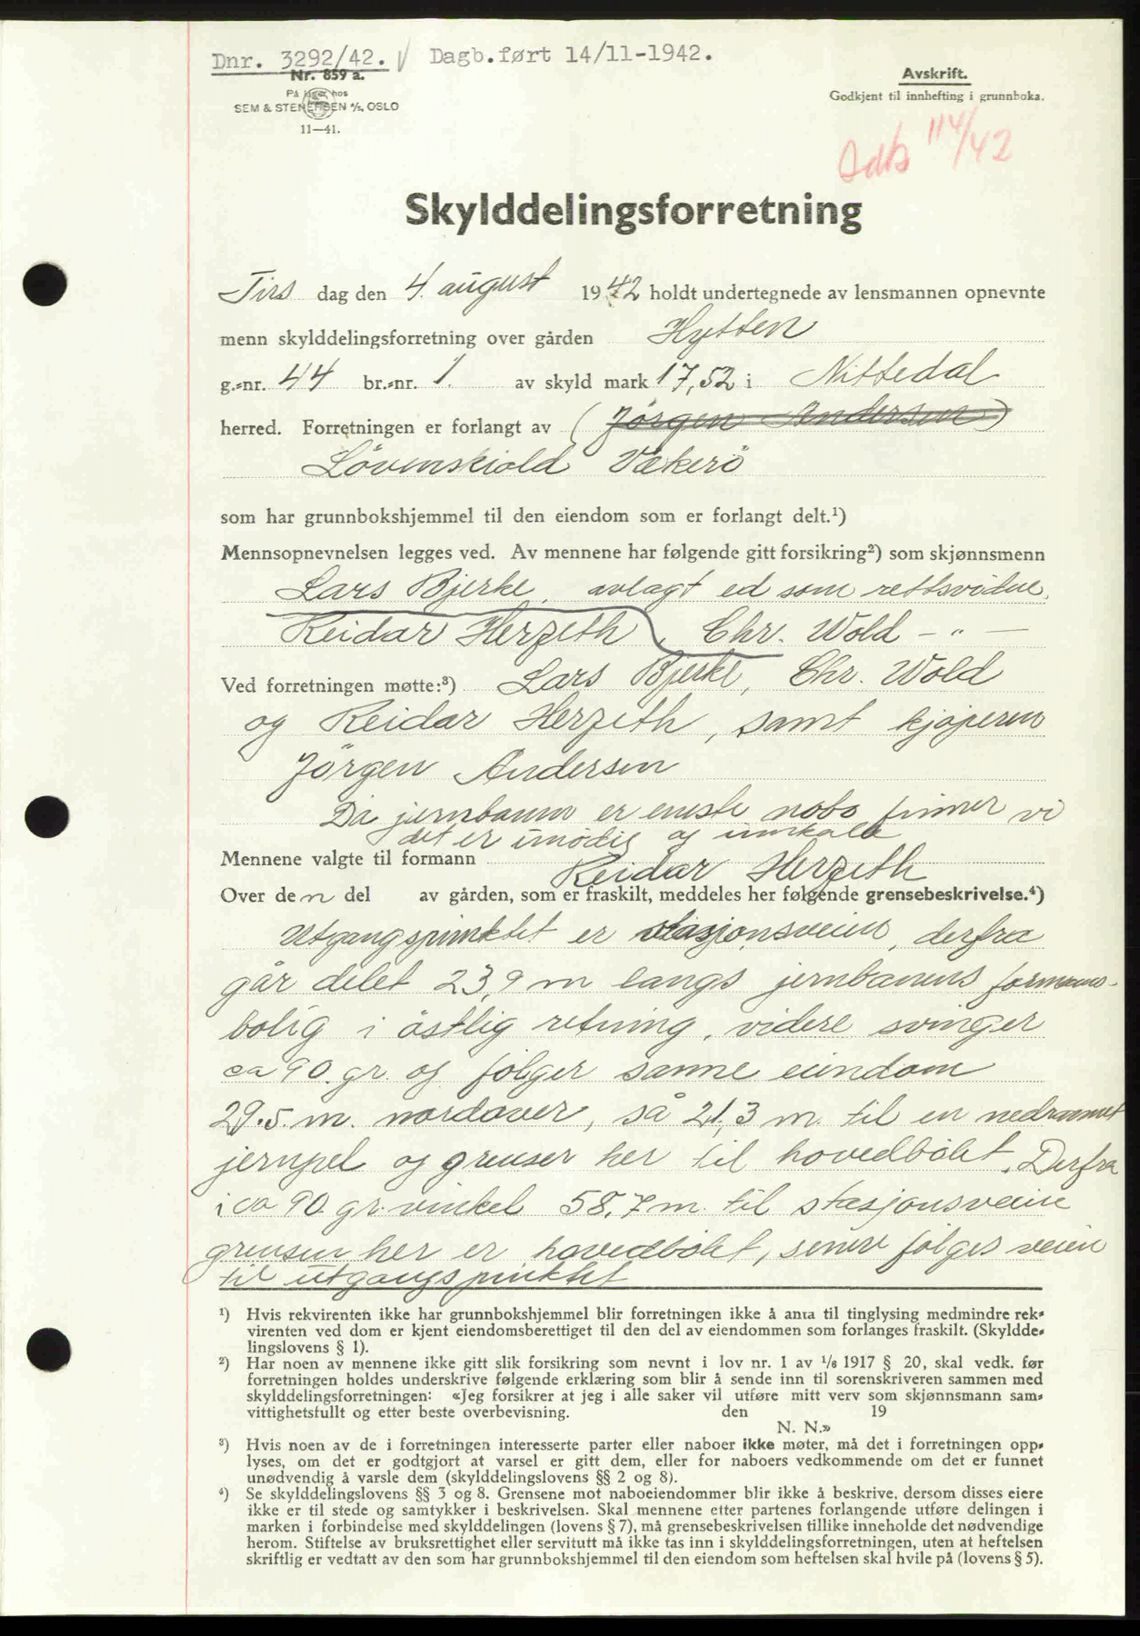 Dnr. 3292/42. Dagb.ført 14/11-1942.
Nr. 859 a.
På lager hos
SEM & STENERSEN A/S, OSLO
11—41.
Avskrift.
Godkjent til innhefting i grunnboka.
114/42
Skylddelingsforretning
Tirs dag den 4. august 1942 holdt undertegnede av lensmannen opnevnte
menn skylddelingsforretning over gården Hytten
g.-nr. 44 br.-nr. 1. av skyld mark 17,52 i Nittedal
herred. Forretningen er forlangt av (Jörgen Andersen)
Lövenskiold Vækerö
som har grunnbokshjemmel til den eiendom som er forlangt delt.¹)
Mennsopnevnelsen legges ved. Av mennene har følgende gitt forsikring²) som skjønnsmenn
Lars Bjerke, avlagt ed som rettsvidne,
Reidar Herzeth, Chr. Wold - " -
Ved forretningen møtte:³) Lars Bjerke, Chr. Wold
og Reidar Herzeth, samt kjøperen
Jörgen Andersen
Da jernbanen er eneste nabo finner vi
det er unødig og innkalle
Mennene valgte til formann Reidar Herzeth
Over den del av gården, som er fraskilt, meddeles her følgende grensebeskrivelse.⁴)
Utgangspunktet er stasjonsveien, derfra
går delet 23,9 m langs jernbanens formanns-
bolig i östlig retning, videre svinger
ca 90 gr. og fölger samme eiendom
29.5. m. nordover, så 21,3 m. til en nedrammet
jernpel og grenser her til hovedbölet. Derfra
i ca 90 gr. vinkel 58,7 m. til stasjonsveien
grensen her er hovedbölet, senere fölges veien
til utgangspunktet
¹) Hvis rekvirenten ikke har grunnbokshjemmel blir forretningen ikke å anta til tinglysing medmindre rek-
virenten ved dom er kjent eiendomsberettiget til den del av eiendommen som forlanges fraskilt. (Skyldde-
lingslovens § 1).
²) Har noen av mennene ikke gitt slik forsikring som nevnt i lov nr. 1 av 1/6 1917 § 20, skal vedk. før
forretningen holdes underskrive følgende erklæring som blir å sende inn til sorenskriveren sammen med
skylddelingsforretningen: «Jeg forsikrer at jeg i alle saker vil utføre mitt verv som skjønnsmann sam-
vittighetsfullt og etter beste overbevisning. den 19
N. N.»
³) Hvis noen av de i forretningen interesserte parter eller naboer ikke møter, må det i forretningen opp-
lyses, om det er godtgjort at varsel er gitt dem, eller for naboers vedkommende om det er funnet
unødvendig å varsle dem (skylddelingslovens §§ 2 og 8).
⁴) Se skylddelingslovens §§ 3 og 8. Grensene mot naboeiendommer blir ikke å beskrive, dersom disses eiere
ikke er til stede og samtykker i beskrivelsen. Skal mennene etter partenes forlangende utføre delingen i
marken i forbindelse med skylddelingen (lovens § 7), må grensebeskrivelsen tillike inneholde det nødvendige
herom. Stiftelse av bruksrettighet eller servitutt må ikke tas inn i skylddelingsforretningen, uten at heftelsen
skriftlig er vedtatt av den som har grunnbokshjemmel til den eiendom som heftelsen skal hvile på (lovens § 5).